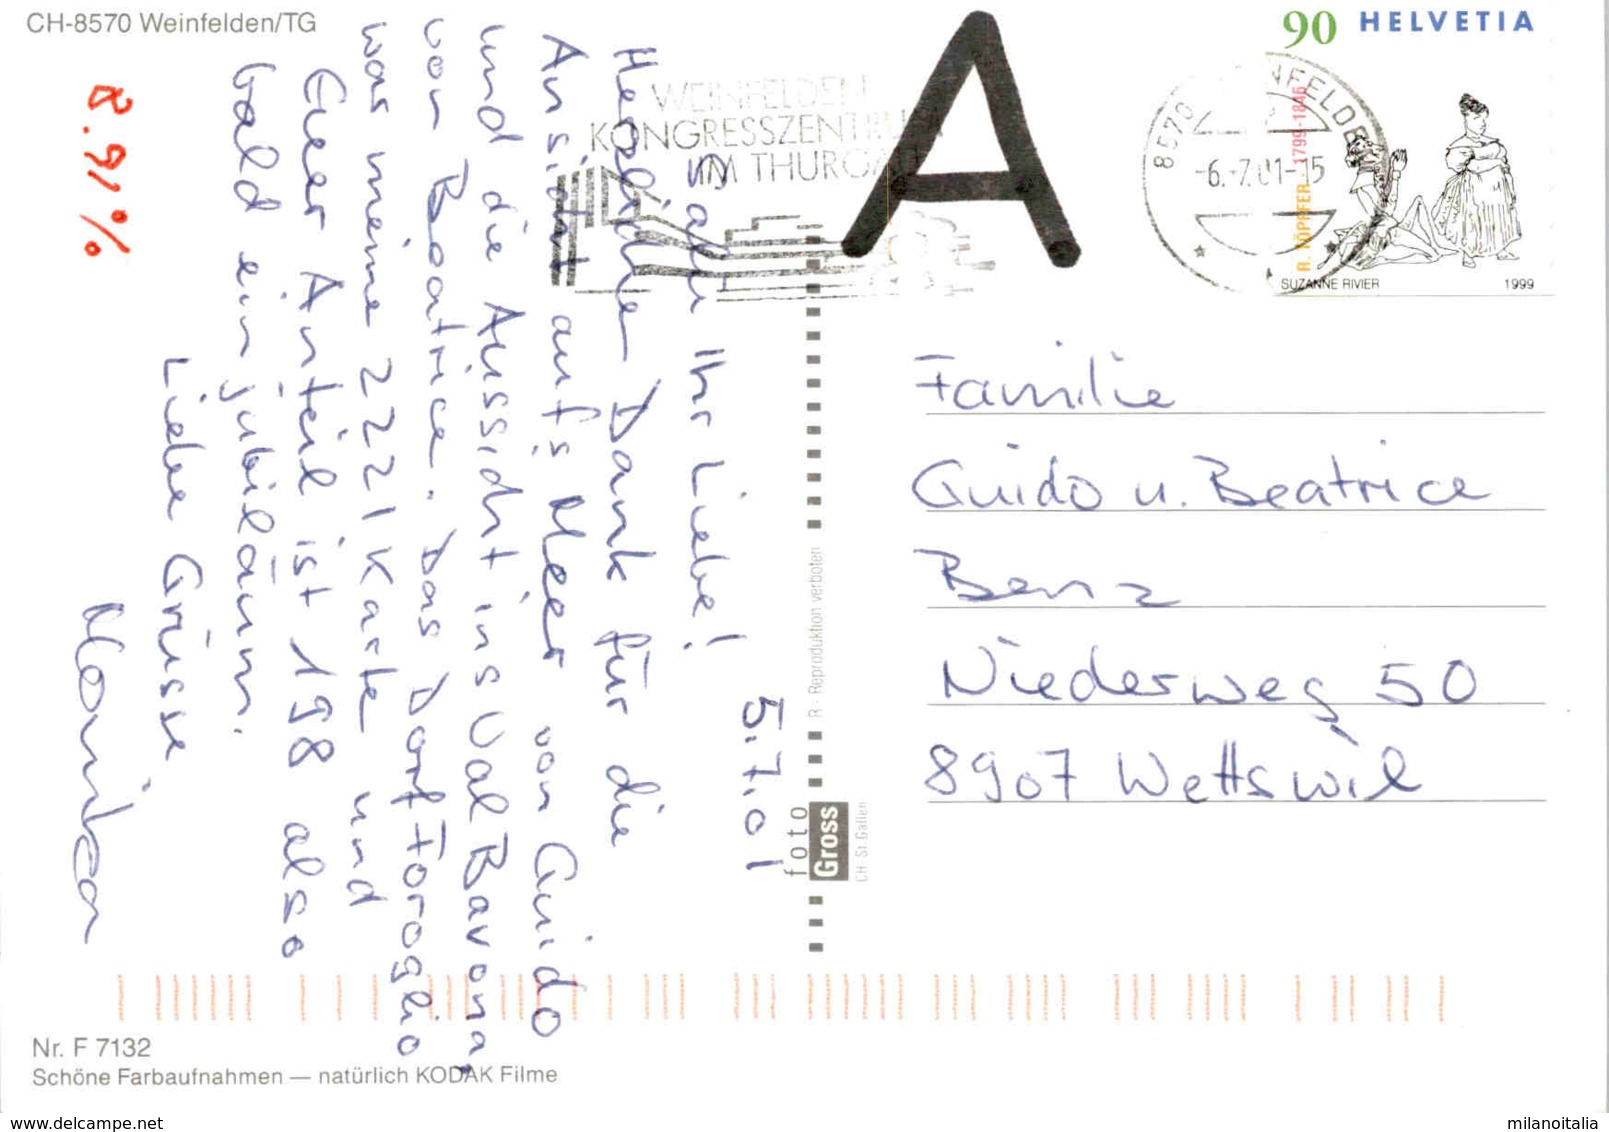 CH-8570 Weinfelden/TG
8.91%
5.7.01
Ihr Liebe!
Herzliche Dank für die
Ansicht aufs Meer von Guido
und die Aussicht ins Val Bavona,
von Beatrice. Das Dorf Foroglio
war meine 2221 Karte und
Euer Anteil ist 198 also
bald ein jubiläum.
Liebe Grüsse
Monika
WEINFELDEN
KONGRESSZENTRUM
IM THURGAU
A
90 HELVETIA
8570 WEINFELDEN
-6.-7.01-15
R. TÖPFFER 1799-1846
SUZANNE RIVIER 1999
Familie
Guido u. Beatrice
Benz
Niederweg 50
8907 Wettswil
R - Reproduktion verboten
foto
Gross
CH-St. Gallen
Nr. F 7132
Schöne Farbaufnahmen — natürlich KODAK Filme
www.delcampe.net
milanoitalia